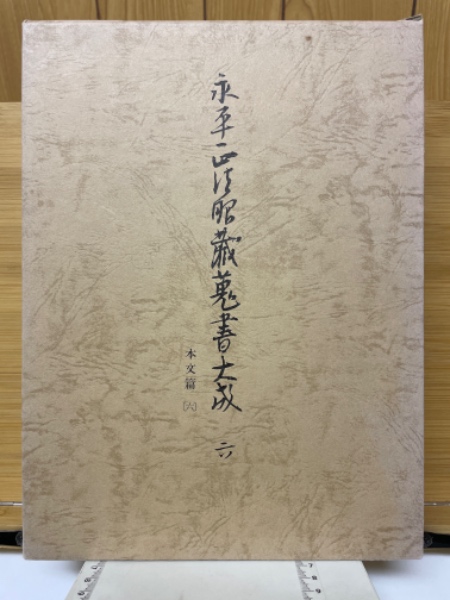 永平正法眼蔵蒐書大成 六
本文篇〔六〕